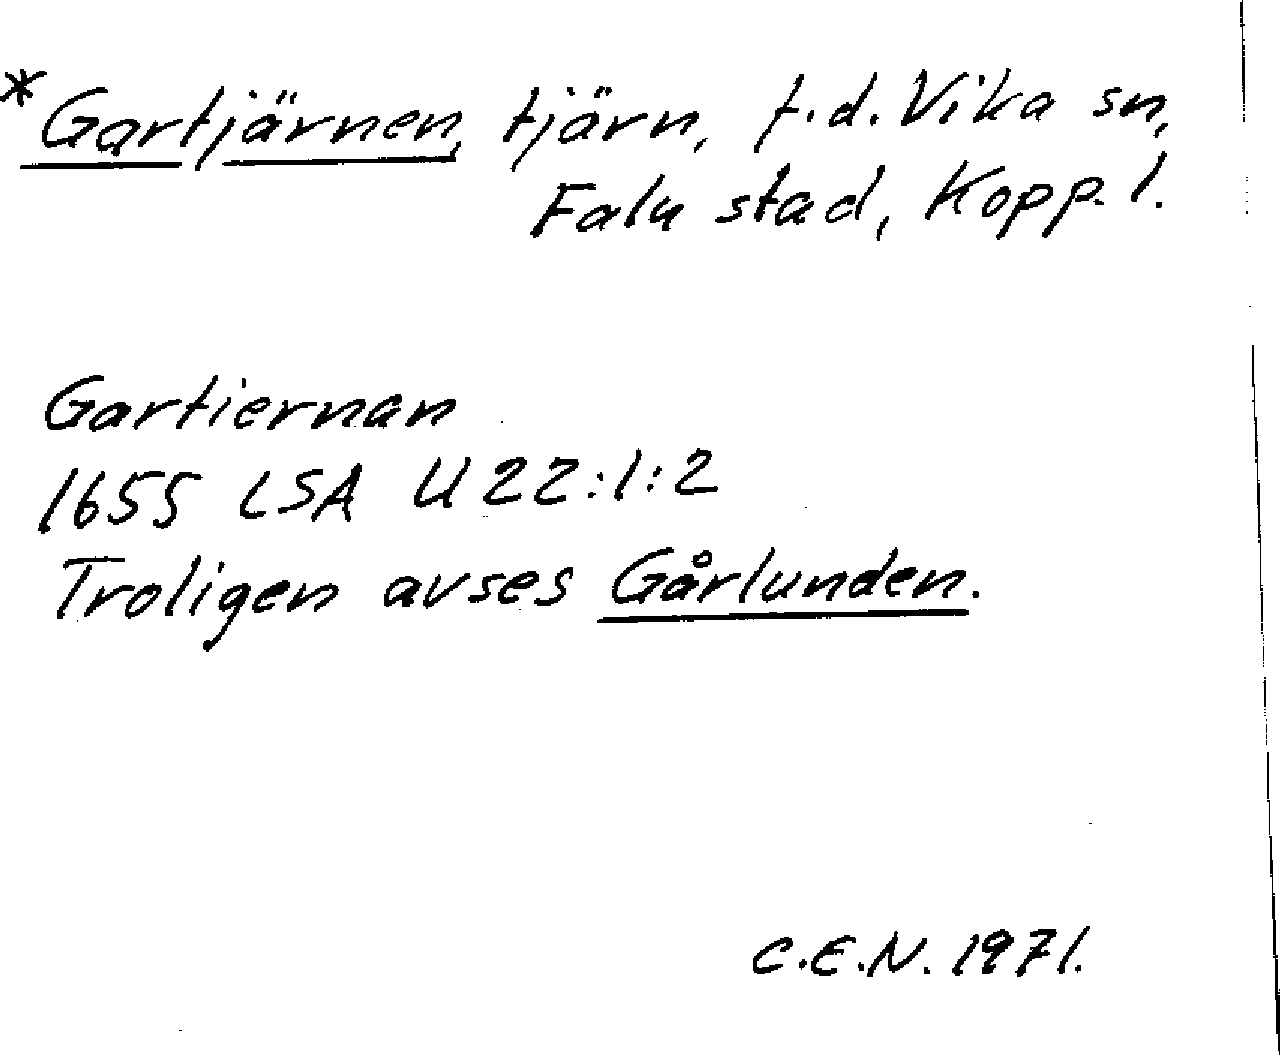 *Gartjärnen, tjärn, f.d. Vika sn,
Falu stad, Kopp. l.
Gartiernan
1655 LSA U 22:1:2
Troligen avses Gårlunden.
C.E.N. 1971.